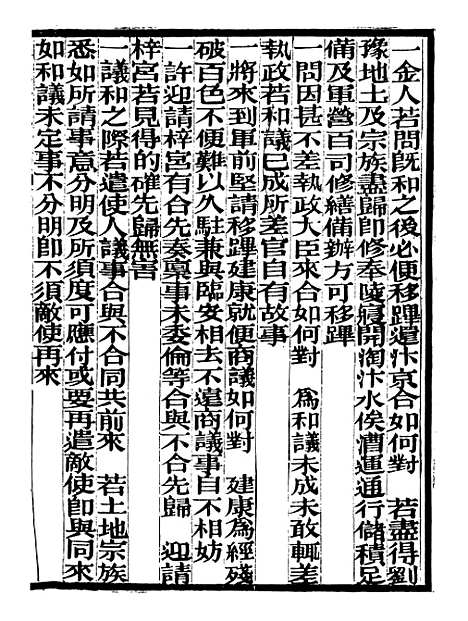 一金人若問旣和之後必便移蹕還汴京合如何對　若盡得劉
豫地土及宗族盡歸即修奉陵寢開淘汴水俟漕運通行儲積足
備及軍營百司修繕備辦方可移蹕
一問因甚不差執政大臣來合如何對　爲和議未成未敢輒差
執政若和議已成所差官自有故事
一將來到軍前堅請移蹕建康就便商議如何對　建康爲經殘
破百色不便難以久駐兼與臨安相去不遠商議事自不相妨
一許迎請梓宮有合先奏稟事未委倫等合與不合先歸　迎請
梓宮若見得的確先歸無害
一議和之際若遣使人議事合與不合同共前來　若土地宗族
悉如所請事意分明及所須度可應付或要再遣敵使即與同來
如和議未定事不分明即不須敵使再來